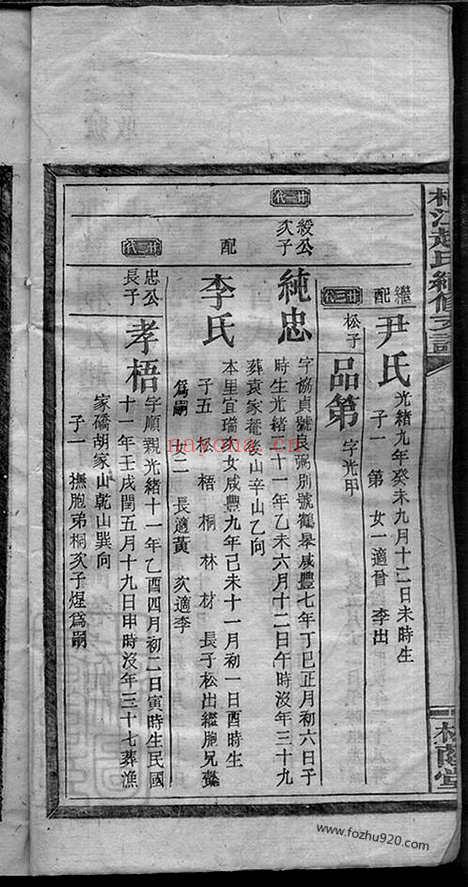 江趙氏續修支譜
繼配
尹氏
光緒九年癸未九月十二日未時生
子一 第 女一適曾 李出
廿三代
松子
品第
字光甲
廿二代
綬公次子
純忠
字協貞號良弼別號鶴舉咸豐七年丁巳正月初六日子
時生光緒二十一年乙未六月十二日午時沒年三十九
葬袁家菴後山辛山乙向
配
李氏
本里宜瑞次女咸豐九年己未十一月初一日酉時生
子五 松 梧 桐 林 材 長子松出繼胞兄
為嗣 女二 長適黃 次適李
廿三代
忠公長子
孝梧
字順親光緒十一年乙酉四月初二日寅時生民國
十一年壬戌閏五月十九日申時沒年三十七葬漁
家僑胡家山乾山巽向
子一 撫胞弟桐次子煋為嗣
nanong.cn
www.fozhu920.com